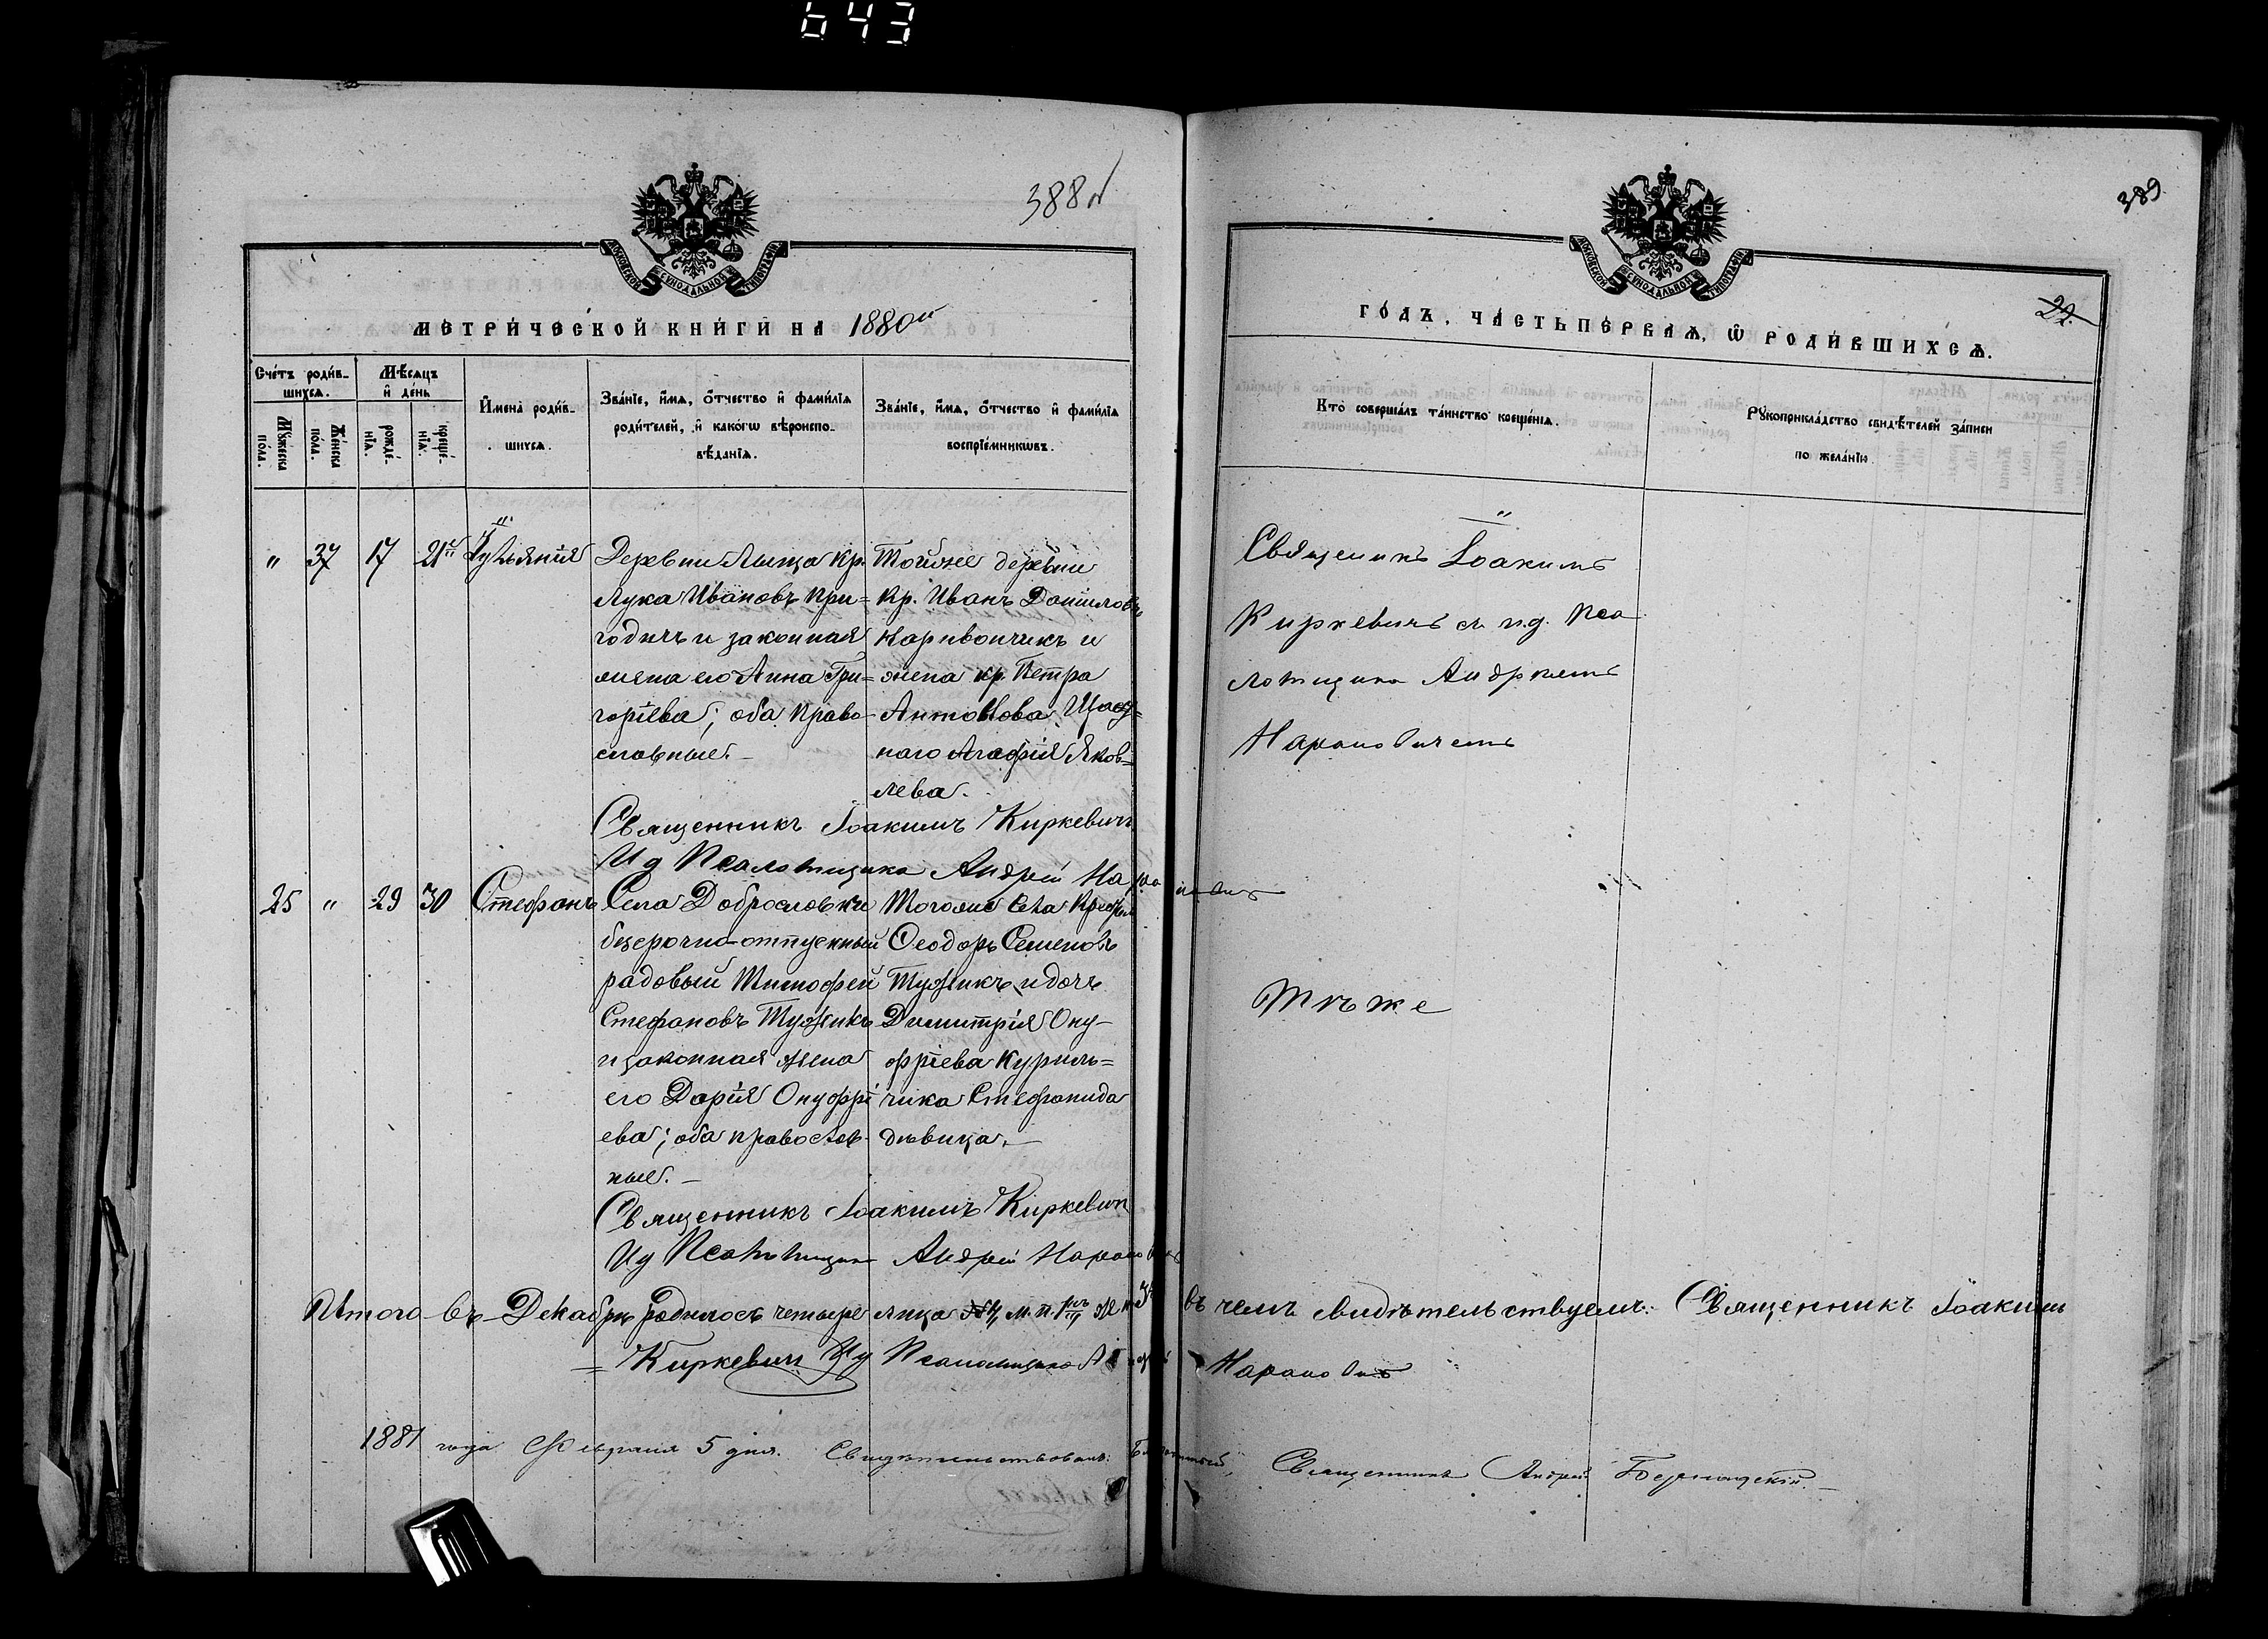 643
388
389
МОСКОВСКОЙ СУНОДАЛЬНОЙ ТИПОГРАФІИ
МОСКОВСКОЙ СУНОДАЛЬНОЙ ТИПОГРАФІИ
МЕТРИ́ЧЕСКОЙ КНИ́ГИ НА 1880й
ГО́ДЪ, ЧА́СТЬ ПЕ́РВАѦ, Ѽ РОДИ́ВШИХСѦ.
29.
Сче́тъ роди́в-
шихсѧ.
Мꙋ́жеска
по́ла.
Же́нска
по́ла.
Мѣ́сѧцъ
и҆ де́нь
рожде́-
нїѧ.
креще́-
нїѧ.
И҆мена̀ роди́в-
шихсѧ.
Зва́нїе, и҆́мѧ, ѻ҆́тчество и҆ фами́лїѧ
роди́телей, и҆ како́гѡ вѣроиспо-
вѣ́данїѧ.
Зва́нїе, и҆́мѧ, ѻ҆́тчество и҆ фами́лїѧ
воспрїе́мникѡвъ.
Кто̀ соверша́лъ та́инство креще́нїѧ.
Рꙋкоприкла́дство свидѣ́телей за́писи
по жела́нїю.
" 37 17 21й Іуліанія
Деревни Лыща кр.
Лука Ивановъ При=
годичъ и законная
жена его Анна Гри=
горіева; оба право-
славные.-
Тойже деревни
Кр. Иванъ Даниловъ
Каривончикъ и
жена кр. Петра
Антонова
Агафія Яков=
лева.
Священникъ Іоакимъ
Киркевичъ съ и.д. Пса
ломщика Андреемъ
Нарановичемъ
Священникъ Іоакимъ Киркевичъ
Ид Псаломщика Андрей Наранович
25 " 29 30 Стефанъ
Села Доброславки
безсрочно-отпускный
рядовый Тимофей
Стефановъ Тузикъ
и законная жена
его Дарія Онуфрі
ева; оба православ-
ные.-
Тогоже села
Ѳеодоръ Семеновъ
Тузикъ и дочь
Димитрія Ону-
фріева Куриль=
чика Стефанида
дѣвица.-
Тѣже
Священникъ Іоакимъ Киркевич
Ид Псаломщика Андрей Наранович
Итого въ Декабрѣ родилось четыре лица м. п. въ чемъ свидѣтельствуемъ: Священникъ Іоакимъ
= Киркевич Ид Псаломщика Андрей Наранович
1881 года Февраля 5 дня. Свидѣтельствовалъ: Благочинный, Священникъ Андрей